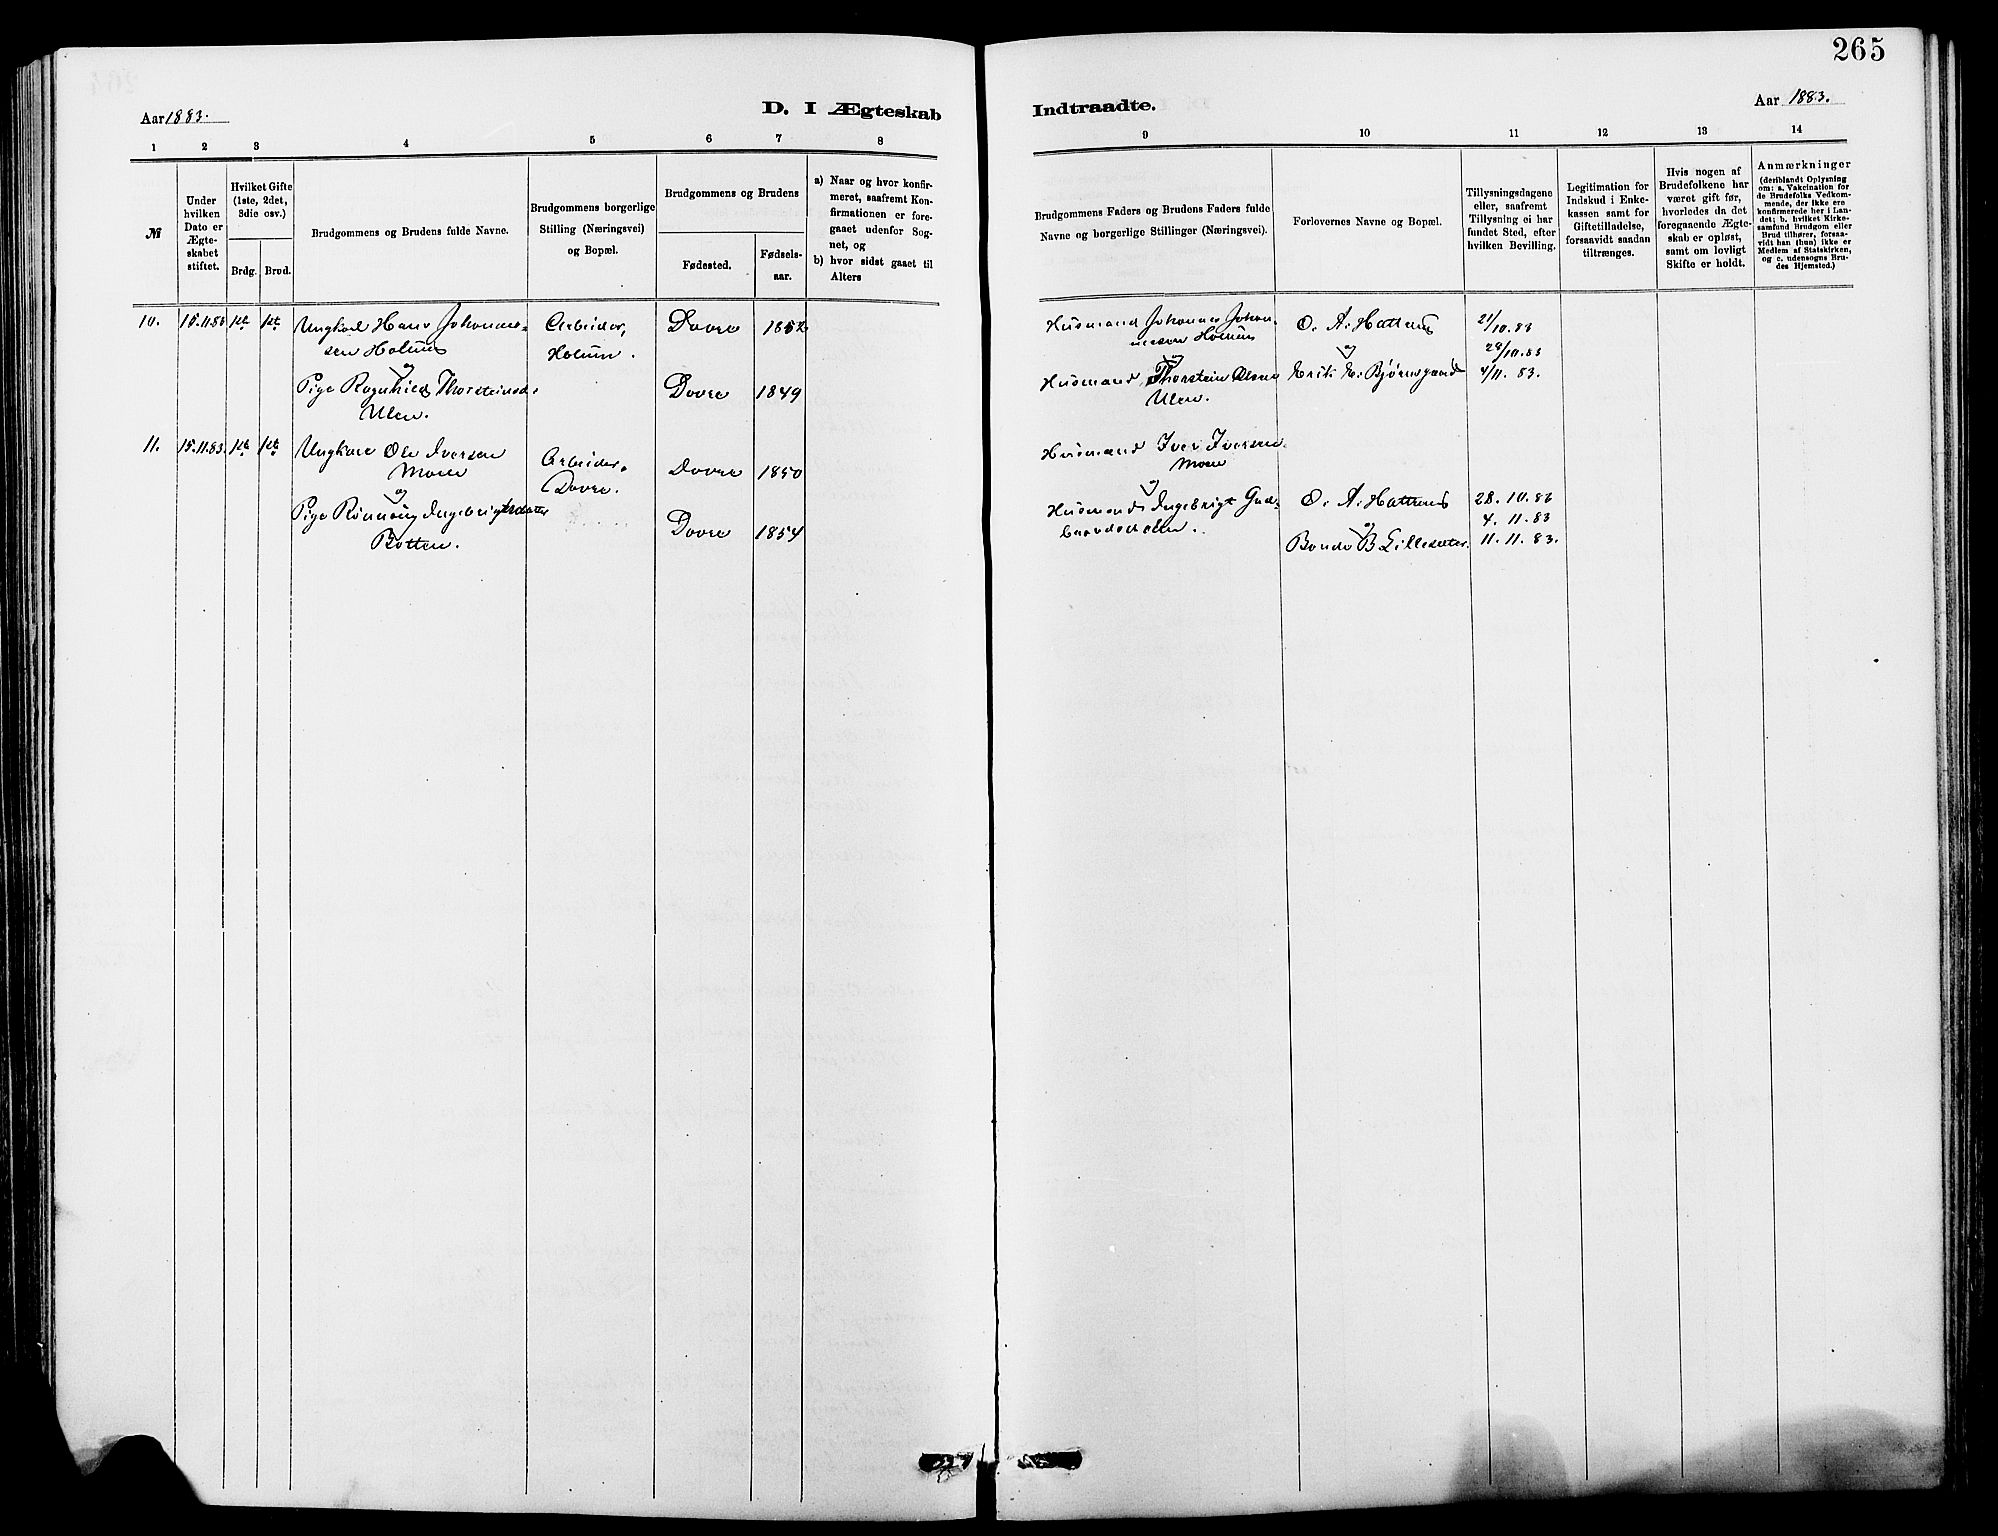 265
Aar 1883.
D. I Ægteskab
Indtraadte.
Aar 1883.
1 2 3 4 5 6 7 8
9 10 11 12 13 14
№
Under
hvilken
Dato er
Ægte-
skabet
stiftet.
Hvilket Gifte
(1ste, 2det,
3die osv.)
Brdg. Brud.
Brudgommens og Brudens fulde Navne.
Brudgommens borgerlige
Stilling (Næringsvei)
og Bopæl.
Brudgommens og Brudens
Fødested.
Fødsels-
aar.
a) Naar og hvor konfir-
meret, saafremt Kon-
firmationen er fore-
gaaet udenfor Sog-
net, og
b) hvor sidst gaaet til
Alters
Brudgommens Faders og Brudens Faders fulde
Navne og borgerlige Stillinger (Næringsvei).
Forlovernes Navne og Bopæl.
Tillysningsdagene
eller, saafremt
Tillysning ei har
fundet Sted, efter
hvilken Bevilling.
Legitimation for
Indskud i Enke-
kassen samt for
Giftetilladelse,
forsaavidt saadan
tiltrænges.
Hvis nogen af
Brudefolkene har
været gift før,
hvorledes da det
foregaaende Ægte-
skab er opløst,
samt om lovligt
Skifte er holdt.
Anmærkninger
(deriblandt Oplysning
om: a. Vakcination for
de Brudefolks Vedkom-
mende, der ikke ere
konfirmerede her i Lan-
det; b. hvilket Kirke-
samfund Brudgom eller
Brud tilhører, forsaa-
vidt han (hun) ikke er
Medlem af Statskirken,
og c. udensogns Bru-
des Hjemsted.)
10. 15.11.83 1st 1st Ungkarl Hans Johannes-
sen Holum
og
Pige Ragnhild Thorsteinsd.
Ulen.
Arbeider,
Holum.
Dovre 1852
Dovre 1849
Husmand Johannes Johan-
nessen Holum
og
Husmand Thorstein Olsen
Ulen.
O. A. Hattrem
og
Erik E. Bjørnsgaard
21/10.83
28/10.83
4/11.83.
11. 15.11.83. 1st 1st Ungkarl Ole Iversen
Moen
og
Pige Rønnaug Ingebrigtsdatter
Botten.
Arbeider.
Dovre.
Dovre 1850
Dovre 1854
Husmand Iver Iversen
Moen
og
Husmand Ingebrigt Gud-
O. A. Hattrem
og
Bonde B Lillesæter.
28.10.83
4.11.83
11.11.83.